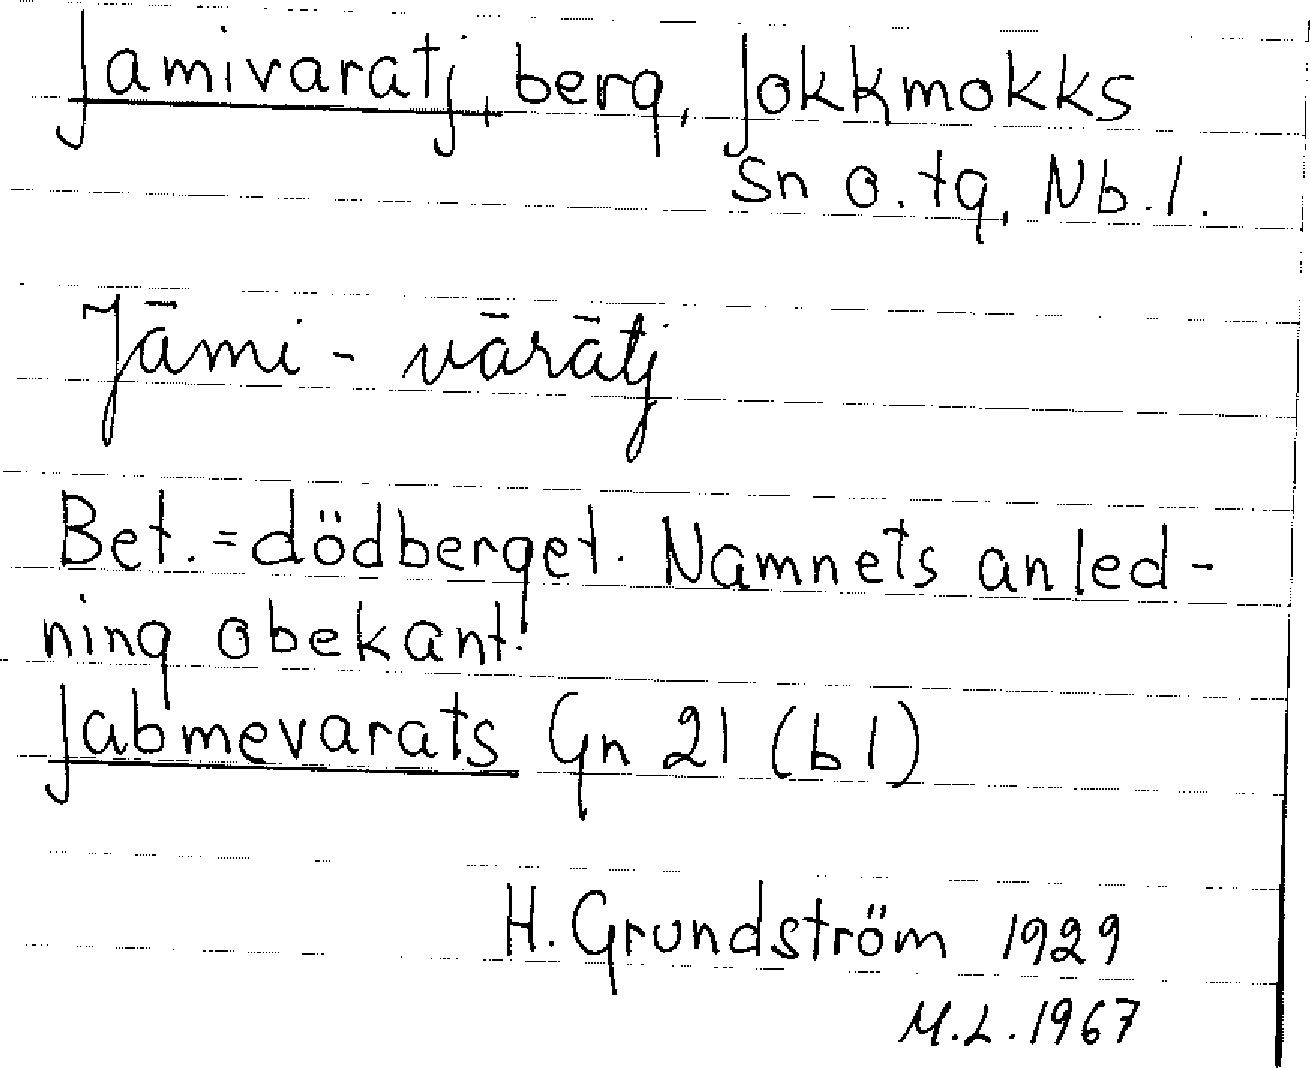 Jamivaratj, berg, Jokkmokks
sn o. tg, Nb. l.
Jāmi - vārātj
Bet. = dödberget. Namnets anled-
ning obekant.
Jabmevarats Gn 21 (bl)
H. Grundström 1929
M.L. 1967